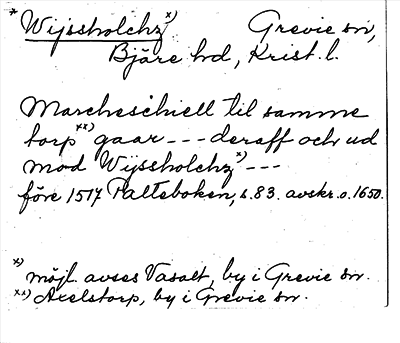 * Wijssholchz x) Grevie sn,
Bjäre hd, Krist. l.
Marcheschiell til samme
torp xx) gaar --- deraff och ud
mod Wijssholchz x) ---
före 1517 Palteboken, s. 83. avskr. o. 1650.
x) möjl. avses Vasalt, by i Grevie sn.
xx) Axelstorp, by i Grevie sn.